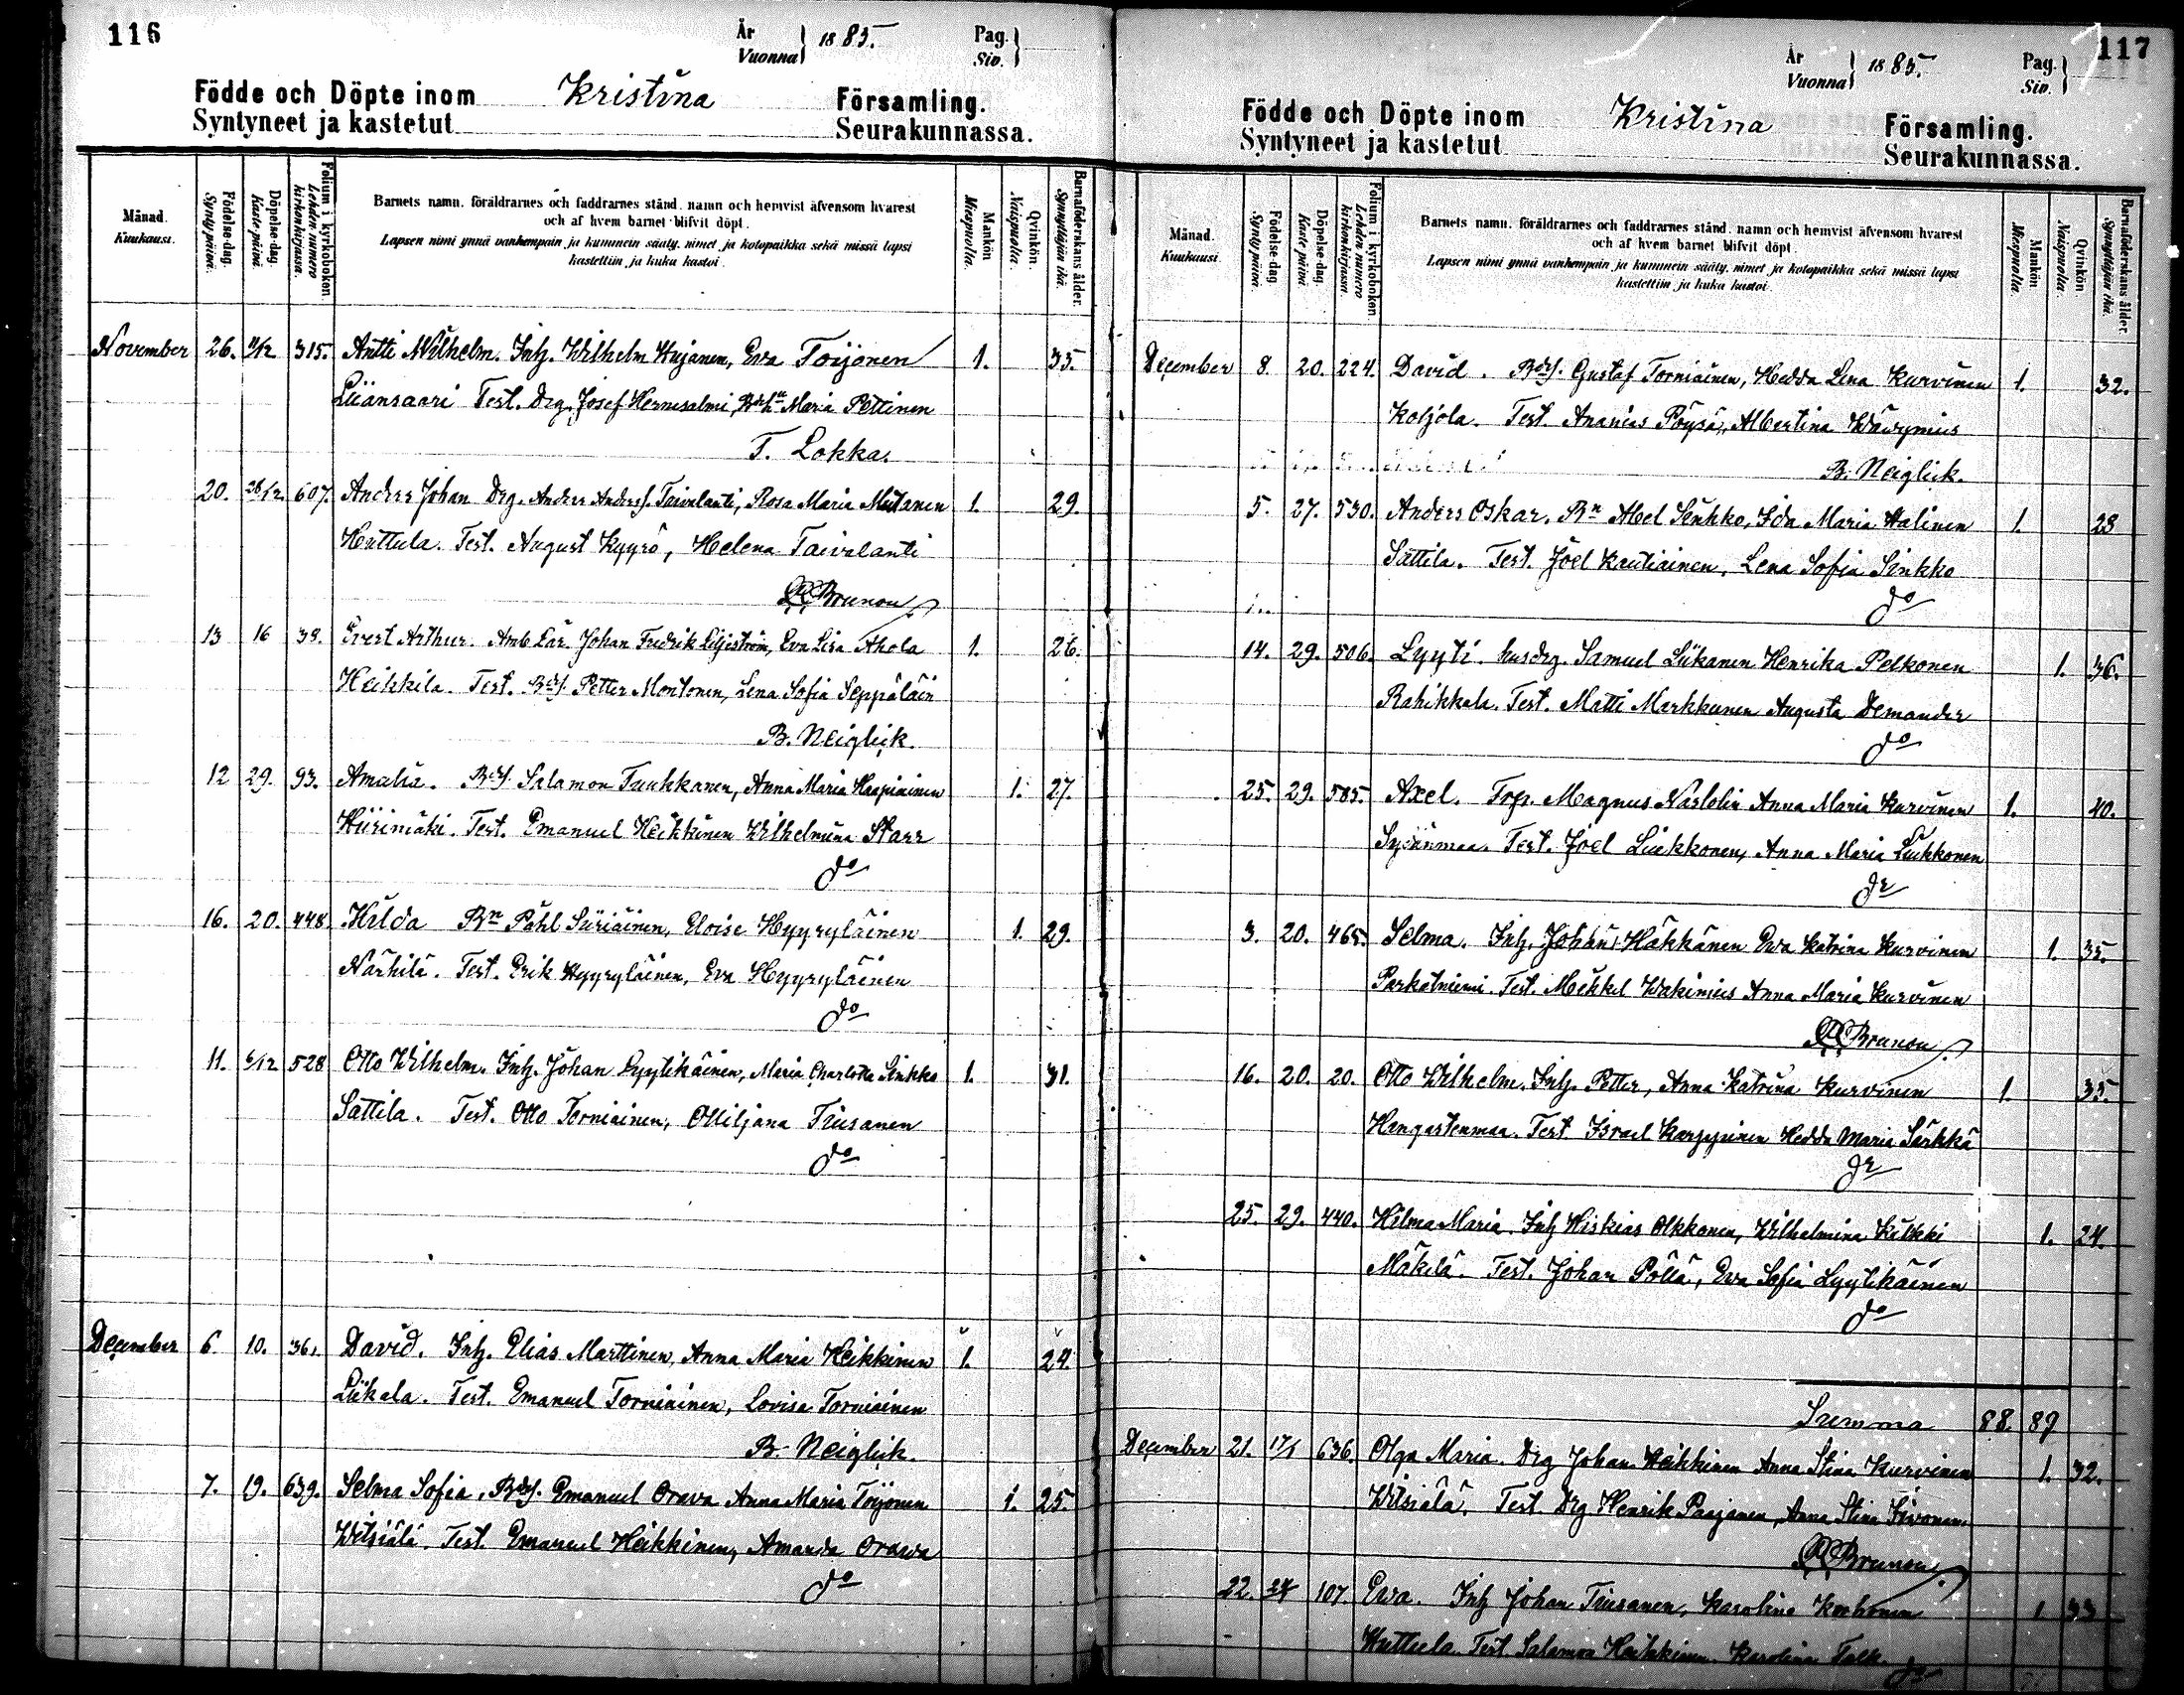 116
År
Vuonna } 1885.
Pag.
Siv. }
Födde och Döpte inom Kristina Församling.
Syntyneet ja kastetut Seurakunnassa.
Månad.
Kuukausi.
Födelse-dag.
Syntypäivä.
Döpelse-dag.
Kastepäivä.
Folium i kyrkoboken
Lehden numero
kirkonkirjassa.
Barnets namn, föräldrarnes och faddrarnes stånd, namn och hemvist äfvensom hvarest
och af hvem barnet blifvit döpt.
Lapsen nimi ynnä vanhempain ja kummein sääty, nimet ja kotopaikka sekä missä lapsi
kastettiin ja kuka kastoi.
Mankön
Miespuolia.
Qvinkön.
Naispuolia.
Barnaföderskans ålder.
Synnyttäjän ikä.
November 26. 11/12 315. Antti Wilhelm. Inh. Wilhelm Hujanen, Eva Toijonen 1. 35.
Liiansaari Test. Drg. Josef Hernesalmi, Maria Pettinen
T. Lokka.
20. 28/12 607. Anders Johan Drg. Anders Anderss. Taivalanti, Rosa Maria Mutanen 1. 29.
Huttula. Test. August Kyyrö, Helena Taivalanti
Brunou
13 16 38. Evert Arthur. Amb. Lär. Johan Fredrik Liljeström, Eva Lisa Ahola 1. 26.
Heikkilä. Test. Bdes. Petter Montonen, Lena Sofia Seppäläin
B. Neiglick.
12 29. 93. Amalia. Bdes. Salamon Tuukkanen, Anna Maria Haapiainen 1. 27.
Hiirimäki. Test. Emanuel Heikkinen Wilhelmina Starr
do
16. 20. 448. Hilda Bn Påhl Siiriäinen, Eloise Hyyryläinen 1. 29.
Närhilä. Test. Erik Hyyryläinen, Eva Hyyryläinen
do
11. 6/12 528 Otto Wilhelm. Inh. Johan Lyytikäinen, Maria Charlotta Sinkko 1. 31.
Sattila. Test. Otto Torniainen, Ottiljana Tiusanen
do
December 6. 10. 361 David. Inh. Elias Marttinen, Anna Maria Heikkinen 1. 24.
Liikala. Test. Emanuel Torniainen, Lovisa Torniainen
B. Neiglick.
7. 19. 639. Selma Sofia. Bdes. Emanuel Orava Anna Maria Toijonen 1. 25.
Witsiälä. Test. Emanuel Heikkinen, Amanda Orava
do
117
År
Vuonna } 1885.
Pag.
Siv. }
Födde och Döpte inom Kristina Församling.
Syntyneet ja kastetut Seurakunnassa.
Månad.
Kuukausi.
Födelse-dag
Syntypäivä.
Döpelse-dag
Kastepäivä.
Folium i kyrkoboken
Lehden numero
kirkonkirjassa.
Barnets namn, föräldrarnes och faddrarnes stånd, namn och hemvist äfvensom hvarest
och af hvem barnet blifvit döpt.
Lapsen nimi ynnä vanhempain ja kummein sääty, nimet ja kotopaikka sekä missä lapsi
kastettiin ja kuka kastoi.
Mankön
Miespuolia.
Qvinkön.
Naispuolia.
Barnaföderskans ålder.
Synnyttäjän ikä.
December 8. 20. 224. David. Bdes. Gustaf Torniainen, Hedda Lena Kurvinen 1. 32.
Koljola. Test. Ananias Pöysä, Albertina Wäwynius
B. Neiglick.
5. 27. 530. Anders Oskar. Bn Abel Sinkko, Ida Maria Halinen 1. 28
Sattila. Test. Joel Kautiainen, Lena Sofia Sinkko
do
14. 29. 506. Lyyti. husdrg. Samuel Liikanen Henrika Pelkonen 1. 36.
Rahikkala. Test. Matti Markkanen Augusta Demander
do
25. 29. 585. Axel. Trp. Magnus Naslolin Anna Maria Kurvinen 1. 40.
Sydänmaa. Test. Joel Liukkonen, Anna Maria Liukkonen
do
3. 20. 465. Selma. Inh. Johan Häkkänen Eva Katrina Kurvinen 1. 35.
Parkatniemi. Test. Mikkel Wakinius Anna Maria Kurvinen
Brunou
16. 20. 20. Otto Wilhelm. Inh. Petter, Anna Katrina Kurvinen 1. 35.
Hangastenmaa. Test. Israel Karppinen Hedda Maria Särkkä
do
25. 29. 440. Hilma Maria. Inh Hiskias Olkkonen, Wilhelmina Kilkki 1. 24.
Mäkilä. Test. Johan Pöllä, Eva Sofia Lyytikäinen
do
Summa 88. 89
December 21. 17/1 636. Olga Maria. Drg Johan Heikkinen Anna Stina Kurvinen 1. 32.
Witsiälä. Test. Drg Henrik Paajanen, Anna Stina Iivonen.
Brunou
22. 107. Ewa. Inh Johan Tiusanen, Karolina Korhonen 1 33
Huttula. Test. Salamon Heikkinen. Karolina Falk.
do